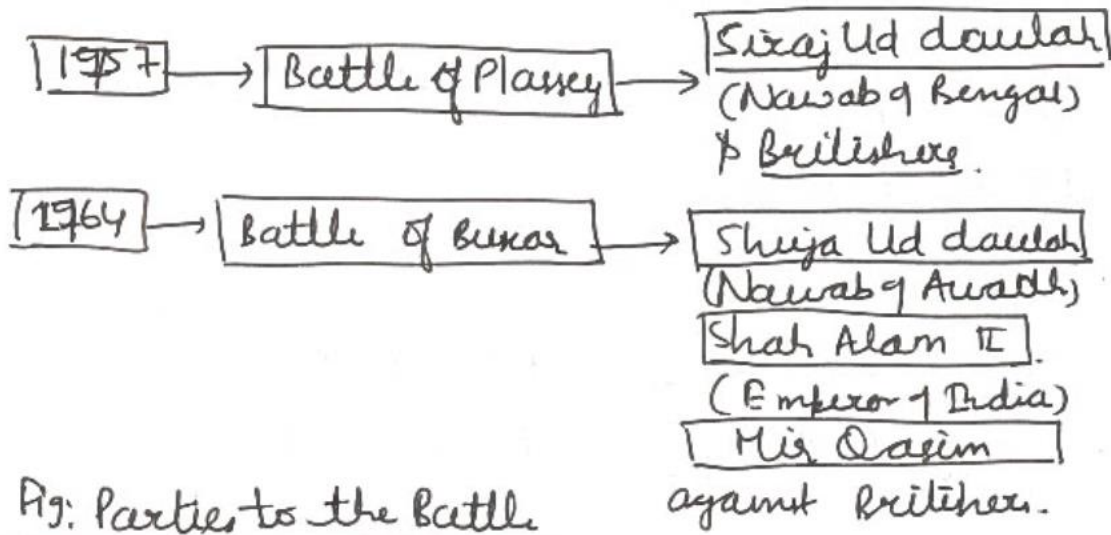 1757 Battle of Plassey Siraj Ud daulah
(Nawab of Bengal)
& Britishers.
1764 Battle of Buxar Shuja Ud daulah
(Nawab of Awadh)
Shah Alam II.
(Emperor of India)
Mir Qasim
against Britishers.
Fig: Parties to the Battle